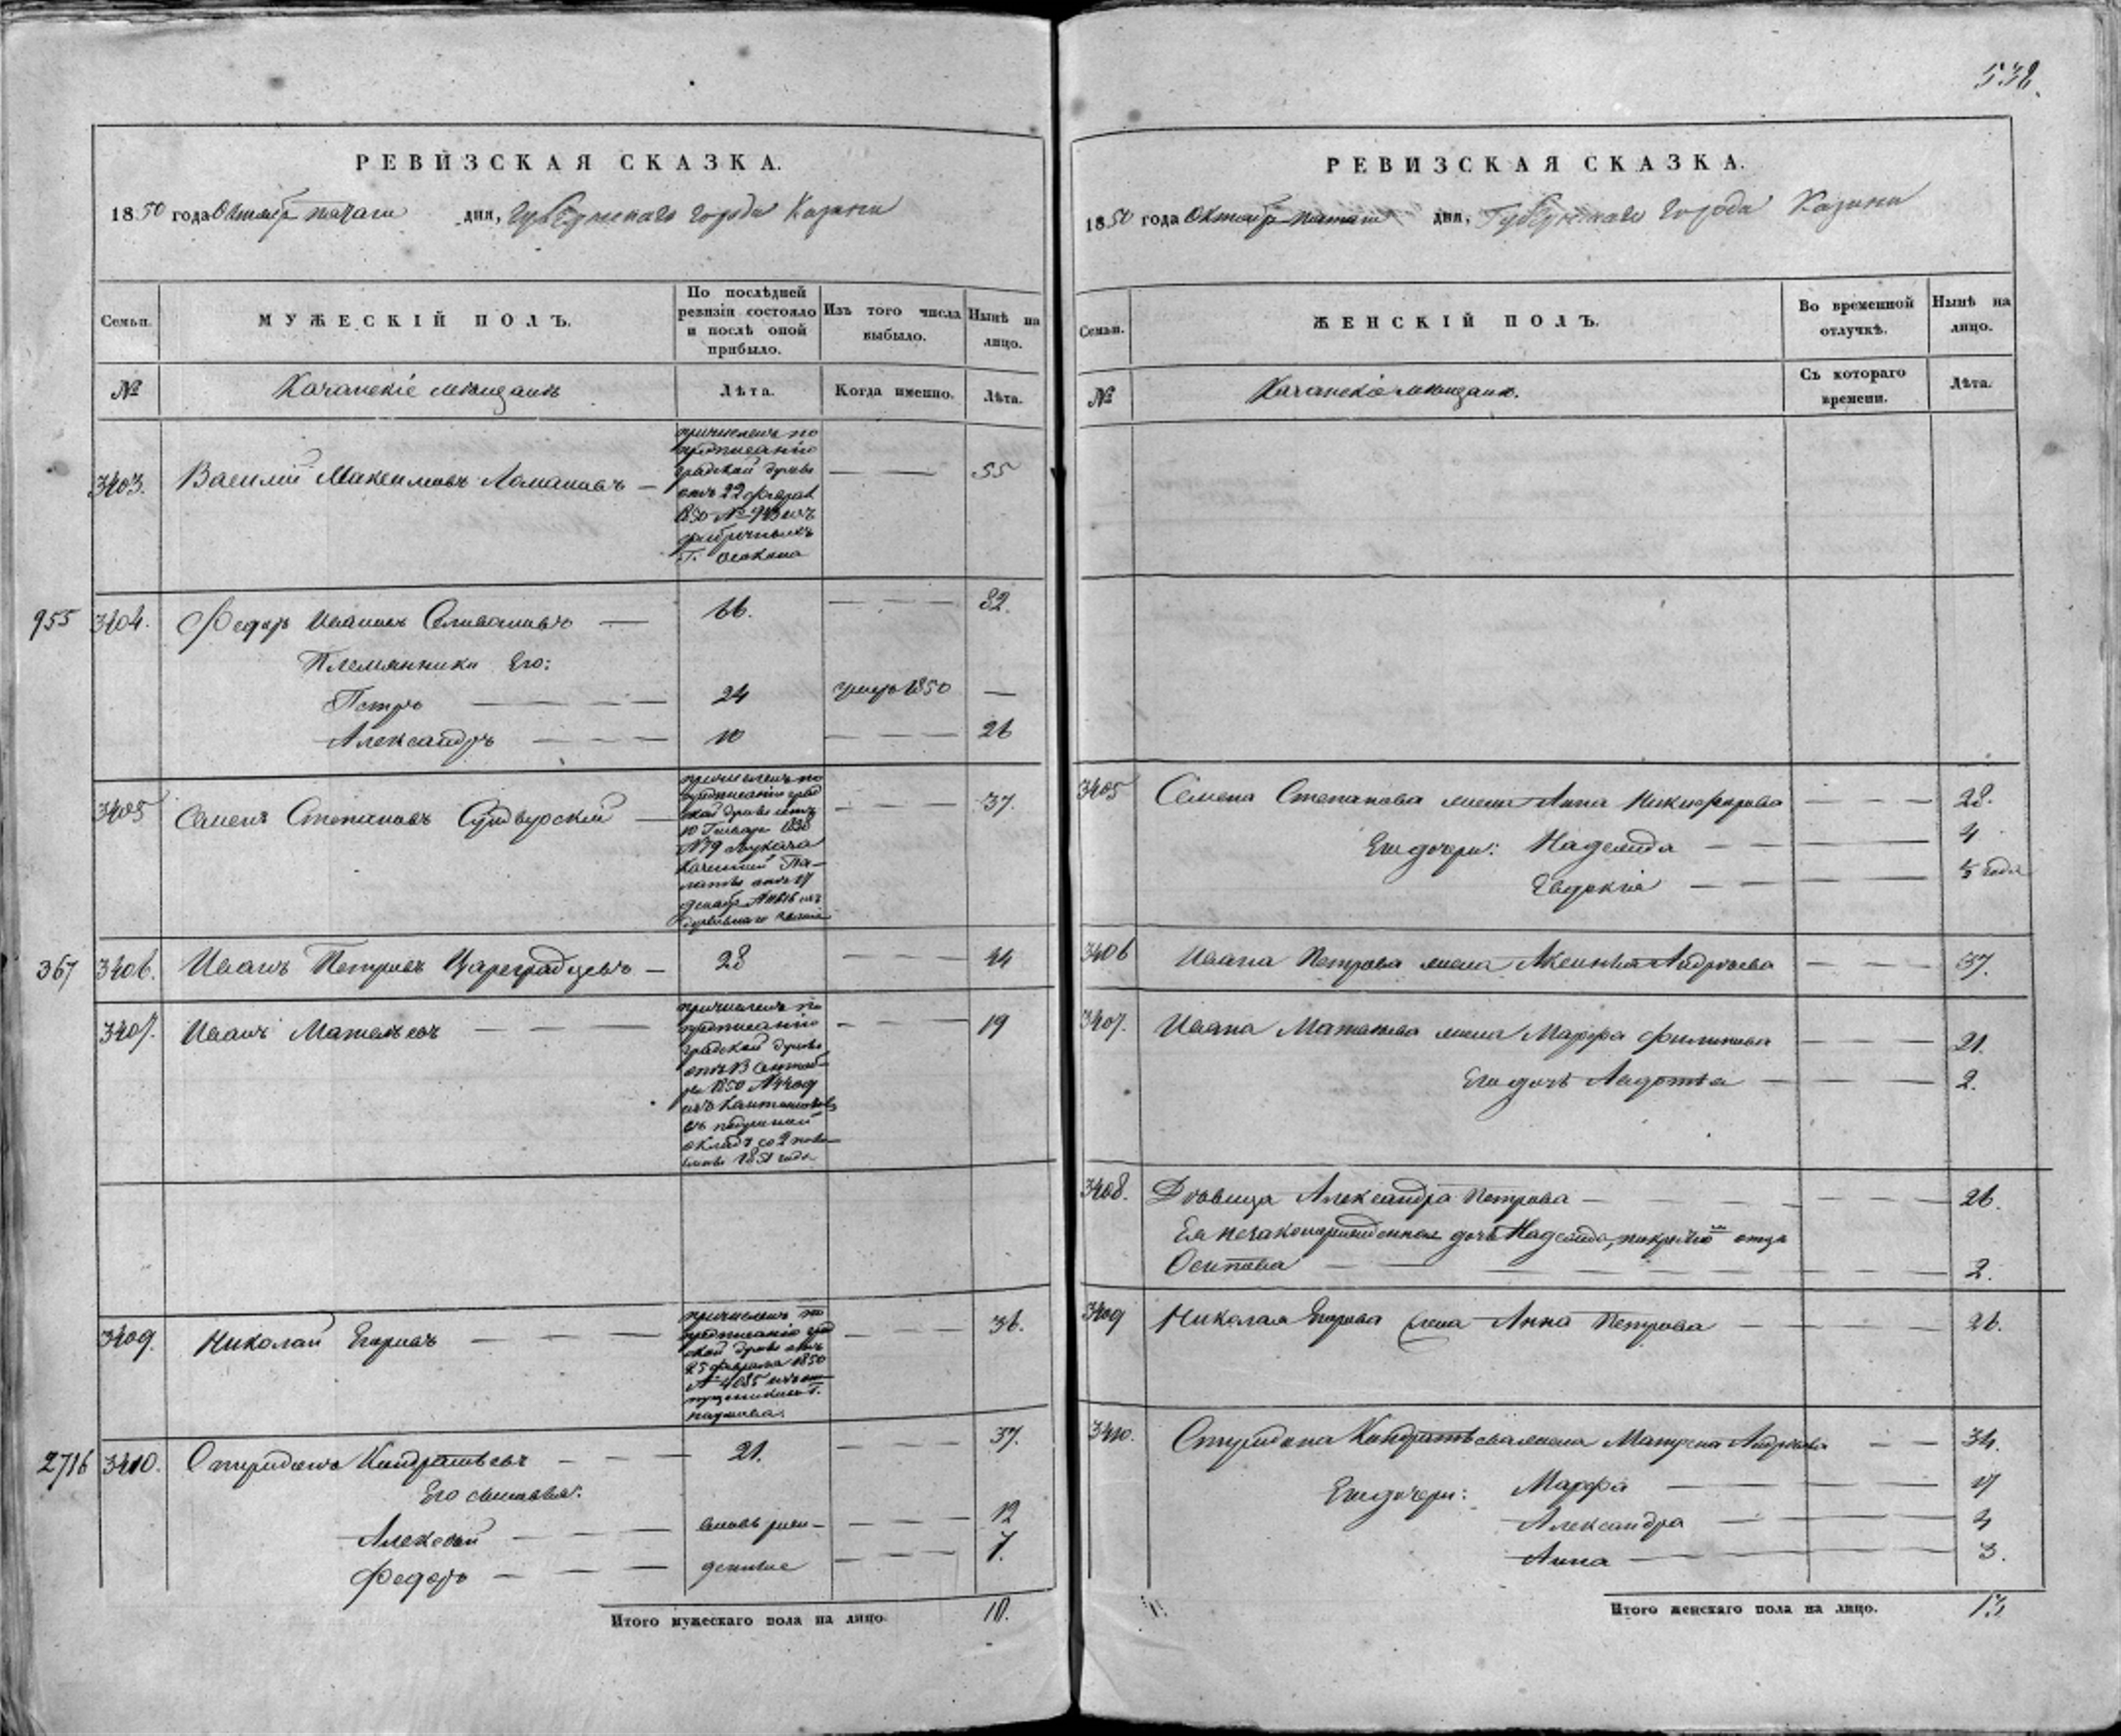 538.
РЕВИЗСКАЯ СКАЗКА.
1850 года Октябр дня, Губернскаго города Казани
Семьи.
МУЖЕСКІЙ ПОЛЪ.
По послѣдней ревизіи состояло и послѣ оной прибыло.
Изъ того числа выбыло.
Нынѣ на лицо.
№
Казанскіе мѣщане
Лѣта.
Когда именно.
Лѣта.
3403. Василий Максимовъ Ломановъ — — — 55
причисленъ по
предписанію
градской думы
отъ 22 феврал
1850 № 943 изъ
фабричныхъ
Г. Осокина
955 3404. Федоръ Ивановъ Селивановъ — 66. — — — 82.
Племянники Его:
Петръ — — — 24 умеръ 1850 —
Александръ — — — 10 — — — 26
3405 Семенъ Степановъ — — — — 37.
причисленъ по
предписанію град
ской думы отъ
10 Генваря 1850
№ 79 Указа
Казенной Па-
латы отъ 17
декабр
духовнаго званія
367 3406. Иванъ Петровъ Цареградцевъ — 28 — — — 44
3407. Иванъ Матвѣевъ — — — — — — 19
причисленъ по
предписанію
градской думы
отъ 13 Сентяб-
ря 1850 № 4409
изъ Кантонистовъ
въ подушный
окладъ со 2 поло-
вины 1851 года
3409. Николай Егоровъ — — — — — — 36.
причисленъ по
предписанію град
ской думы отъ
25 февраля 1850
№ 4085 изъ от
пущенниковъ Г.
Наумова.
2716 3410. Спиридонъ Кондратьевъ — — 21. — — — 37.
Его сыновья:
Алексѣй — — — вновь рож- — — — 12
Федоръ — — — денные — — — 7.
Итого мужескаго пола на лицо. 10.
РЕВИЗСКАЯ СКАЗКА.
1850 года Октябр дня, Губернскаго города Казани
Семьи.
ЖЕНСКІЙ ПОЛЪ.
Во временной отлучкѣ.
Нынѣ на лицо.
№
Казанскіе мѣщане.
Съ котораго времени.
Лѣта.
3405 Семена Степанова жена Анна Никифорова — — — 28.
Ихъ дочери: Надежда — — — 4
Евдокія — — — ½ года
3406 Ивана Петрова жена Аксинья Андрѣева — — — 37.
3407. Ивана Матвѣева жена Марфа Филипова — — — 21.
Ихъ дочь Авдотья — — — 2.
3408. Дѣвица Александра Петрова — — — 26.
Ея незаконорожденная дочь Надежда, по крестн отцѣ
Осипова — — — 2.
3409 Николая Егорова жена Анна Петрова — — — 26.
3410. Спиридона Кондратьева жена Матрена Андрѣева — — 34.
Ихъ дочери: Марфа — — — 17
Александра — — — 4
Анна — — — 3.
Итого женскаго пола на лицо. 13